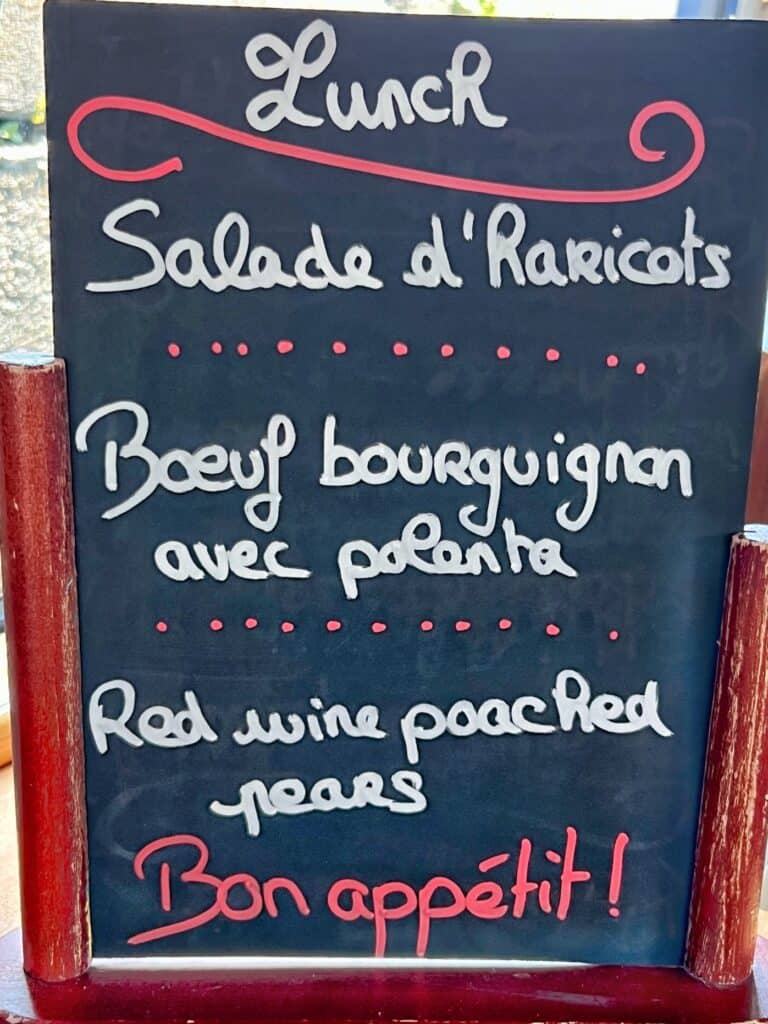 Lunch
Salade d'haricots
Bœuf bourguignon
avec polenta
Red wine poached
pears
Bon appétit !